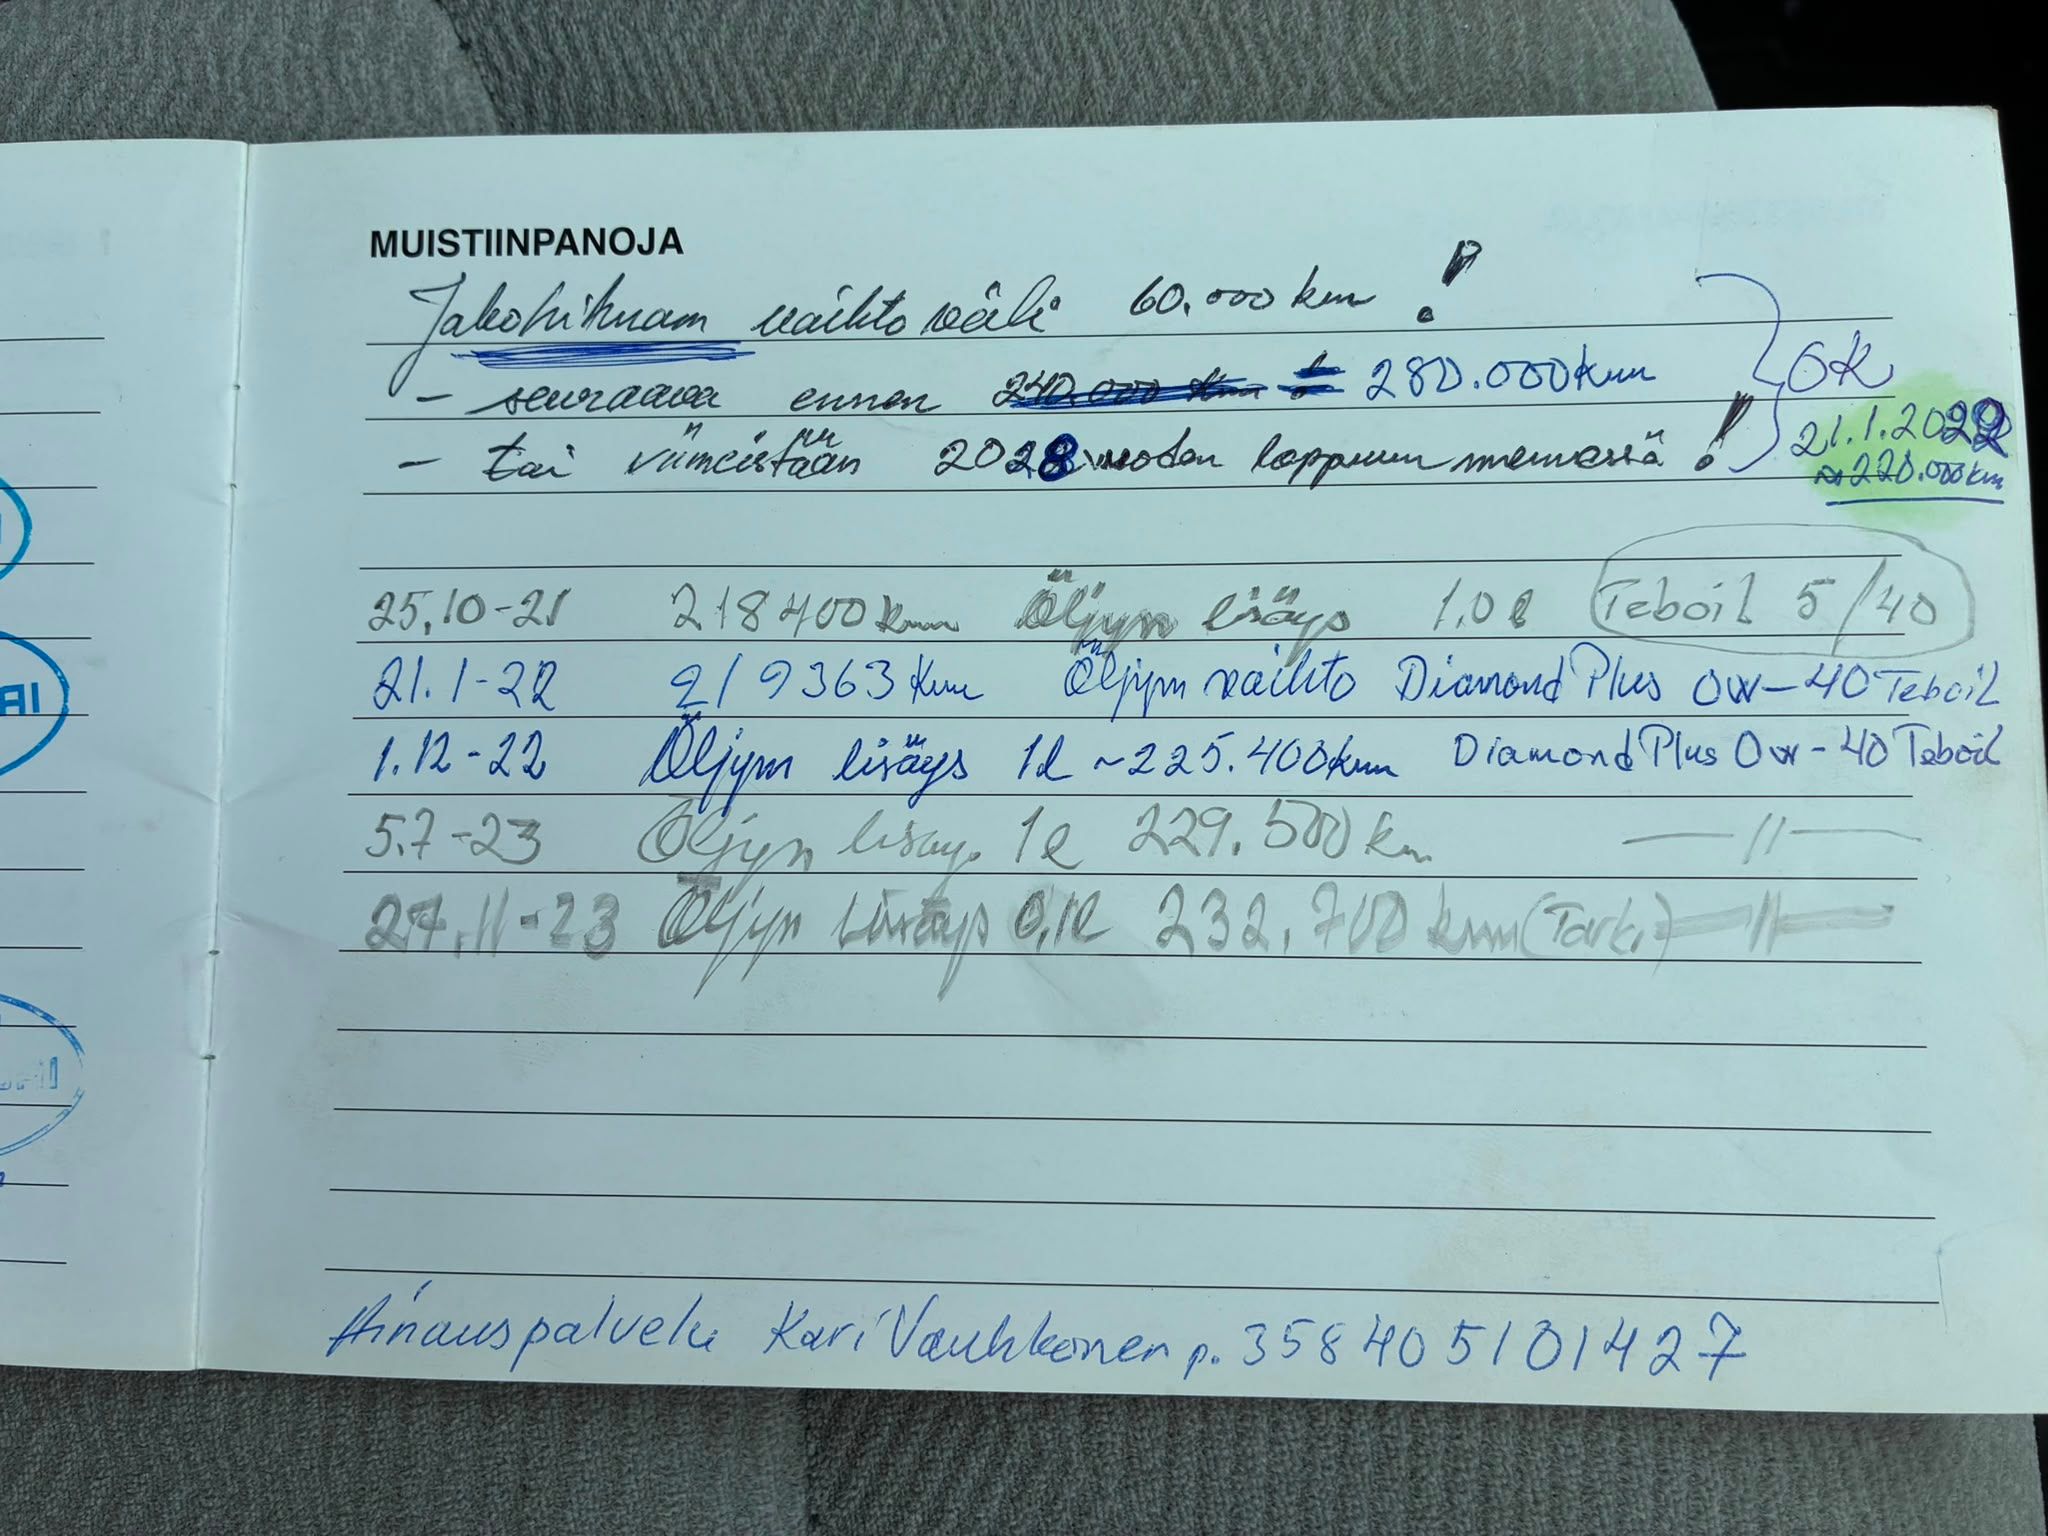 MUISTIINPANOJA
Jakohihnan vaihto väli 60.000 km !
- seuraava ennen 240.000 km ! = 280.000 km
- tai viimeistään 2028 vuoden loppuun mennessä !
OK
21.1.2022
≈ 220.000 km
25.10-21 218400 km Öljyn lisäys 1.0 l Teboil 5/40
21.1-22 219363 km Öljyn vaihto Diamond Plus 0W-40 Teboil
1.12-22 Öljyn lisäys 1l ~225.400 km Diamond Plus 0w-40 Teboil
5.7-23 Öljyn lisäys 1l 229.500 km —11—
27.11-23 Öljyn lisäys 0,1l 232.700 km (Tark.) —11—
Hinauspalvelu Kari Vauhkonen p. 358405101427
AII